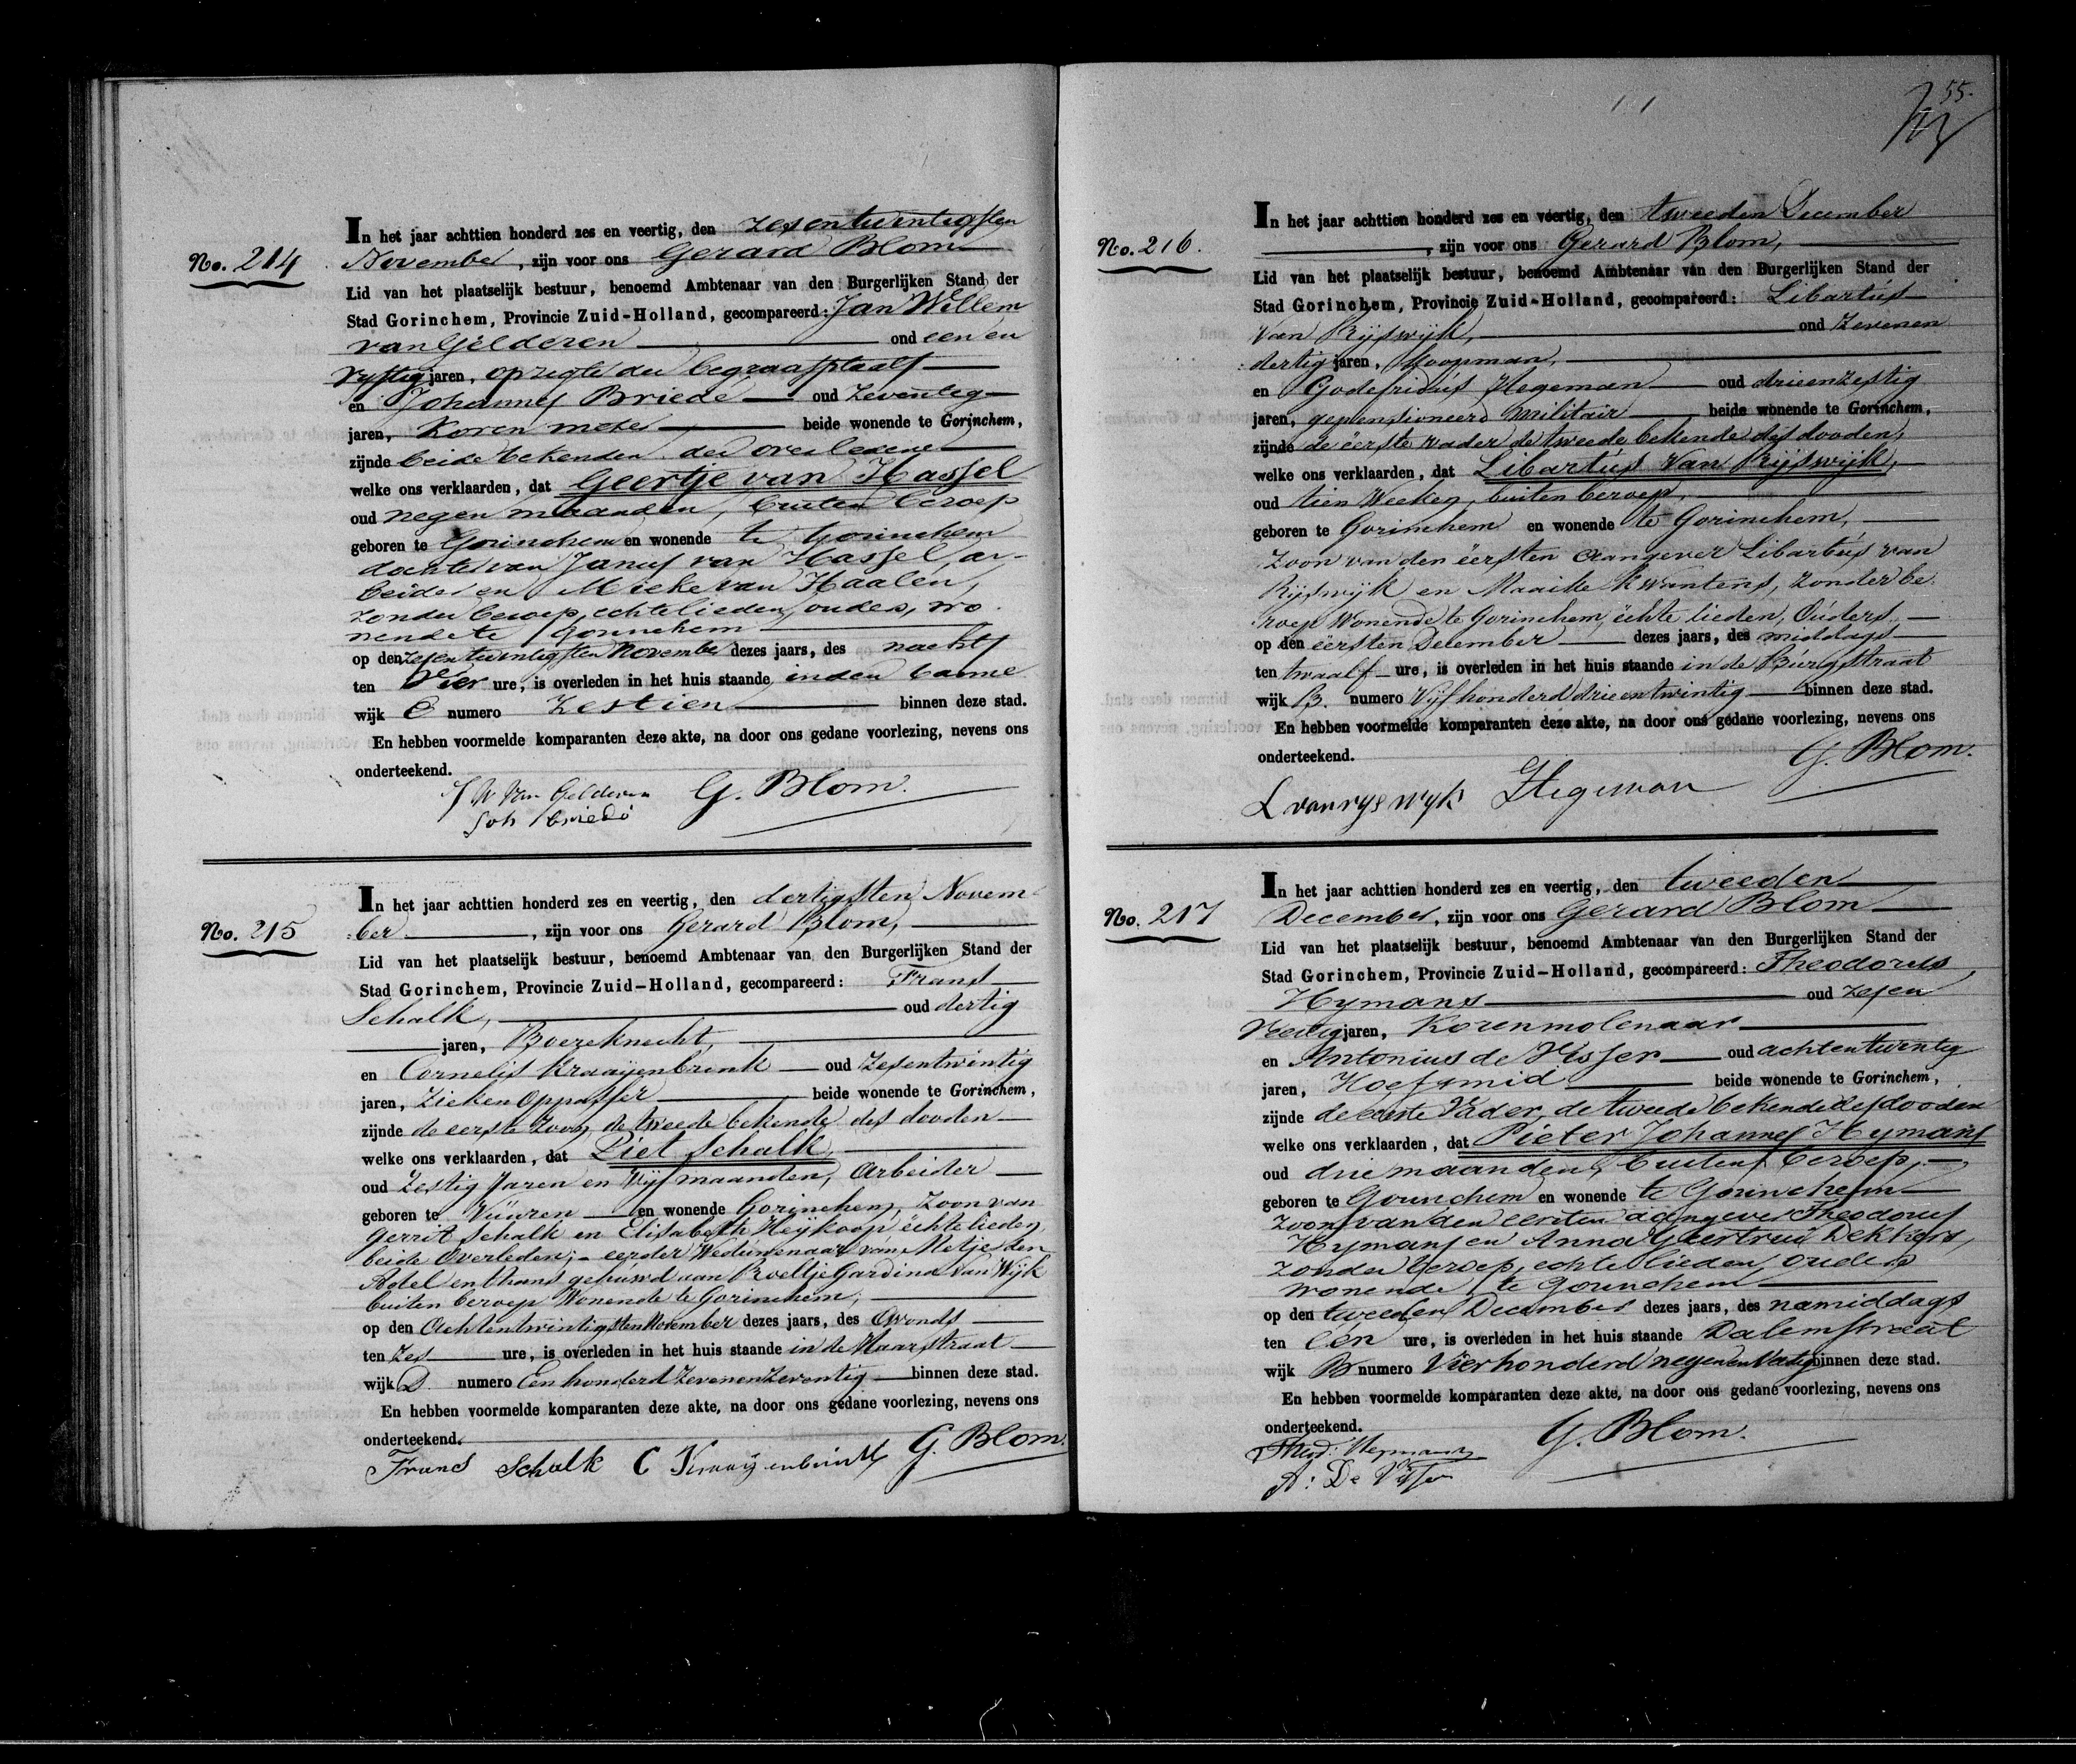 No. 214
In het jaar achttien honderd zes en veertig, den zesentwintigsten
November, zijn voor ons Gerard Blom
Lid van het plaatselijk bestuur, benoemd Ambtenaar van den Burgerlijken Stand der
Stad Gorinchem, Provincie Zuid-Holland, gecompareerd: Jan Willem
van Gelderen oud een en
vyftig jaren, opzigter der begraafplaats
en Johannes Briedé oud zeventig
jaren, Koren meter beide wonende te Gorinchem,
zijnde beide bekenden der overledene
welke ons verklaarden, dat Geertje van Hassel
oud negen maanden, buiten beroep
geboren te Gorinchem en wonende te Gorinchem
dochter van Janus van Hassel, ar-
beider en Mieke van Haalen,
zonder beroep, echtelieden, ouders, wo-
nende te Gorinchem
op den zesentwintigsten November dezes jaars, des nachts
ten vier ure, is overleden in het huis staande in den banne
wijk E numero zestien binnen deze stad.
En hebben voormelde komparanten deze akte, na door ons gedane voorlezing, nevens ons
onderteekend.
J W van Gelderen G. Blom.
Joh Briedé
No. 215
In het jaar achttien honderd zes en veertig, den dertigsten Novem-
:ber, zijn voor ons Gerard Blom,
Lid van het plaatselijk bestuur, benoemd Ambtenaar van den Burgerlijken Stand der
Stad Gorinchem, Provincie Zuid-Holland, gecompareerd: Frans
Schalk, oud dertig
jaren, Boereknecht,
en Cornelis Kraaijenbrink oud zesentwintig
jaren, Zieken Oppasser beide wonende te Gorinchem,
zijnde de eerste zoon, de tweede bekende des dooden
welke ons verklaarden, dat Piet Schalk,
oud Zestig Jaren en Vijf maanden, Arbeider
geboren te Vuuren en wonende Gorinchem, Zoon van
Gerrit Schalk en Elisabeth Heijkoop echtelieden,
beide Overleden; - eerder Weduwenaar van Metje den
Adel en thans gehuwd aan Roeltje Gardina van Wijk
buiten beroep Wonende te Gorinchem,
op den Achtentwintigsten November dezes jaars, des Avonds
ten Zes ure, is overleden in het huis staande in de Haarstraat
wijk D. numero Een honderd Zevenenzeventig binnen deze stad.
En hebben voormelde komparanten deze akte, na door ons gedane voorlezing, nevens ons
onderteekend.
Frans Schalk C Kraaijenbrink G. Blom.
55.
No. 216.
In het jaar achttien honderd zes en veertig, den tweeden December
, zijn voor ons Gerard Blom,
Lid van het plaatselijk bestuur, benoemd Ambtenaar van den Burgerlijken Stand der
Stad Gorinchem, Provincie Zuid-Holland, gecompareerd: Libartus
van Rijswijk, oud Zevenen
:dertig jaren, Koopman,
en Godefridus Hegeman oud drieenzestig
jaren, gepensioneerd militair beide wonende te Gorinchem,
zijnde de eerste vader de tweede bekende des dooden,
welke ons verklaarden, dat Libartus van Rijswijk,
oud tien Weeken, buiten beroep,
geboren te Gorinchem en wonende te Gorinchem,
Zoon van den eersten Aangever Libartus van
Rijswijk en Maaike Kwantens, Zonder be-
:roep Wonende te Gorinchem, echte lieden, Ouders.
op den eersten December dezes jaars, des middags
ten twaalf ure, is overleden in het huis staande in de Burgstraat
wijk B. numero Vijfhonderd drieentwintig binnen deze stad.
En hebben voormelde komparanten deze akte, na door ons gedane voorlezing, nevens ons
onderteekend.
L van ryswyk Hegeman G. Blom.
No. 217
In het jaar achttien honderd zes en veertig, den tweeden
December, zijn voor ons Gerard Blom
Lid van het plaatselijk bestuur, benoemd Ambtenaar van den Burgerlijken Stand der
Stad Gorinchem, Provincie Zuid-Holland, gecompareerd: Theodorus
Hymans oud zesen
veertig jaren, Korenmolenaar
en Antonius de Visser oud achtentwintig
jaren, Hoefsmid beide wonende te Gorinchem,
zijnde de eerste Vader, de tweede bekende des dooden
welke ons verklaarden, dat Pieter Johannes Hymans
oud drie maanden, buiten beroep,
geboren te Gorinchem en wonende te Gorinchem
zoon van den eersten aangever Theodorus
Hymans en Anna Geertrui Dekkers,
zonder beroep, echte lieden, ouders
wonende te Gorinchem
op den tweeden December dezes jaars, des namiddags
ten één ure, is overleden in het huis staande Dalemstraat
wijk B numero Vierhonderd negenenveertig binnen deze stad.
En hebben voormelde komparanten deze akte, na door ons gedane voorlezing, nevens ons
onderteekend.
Theod: Hymans G. Blom.
A: De Visser